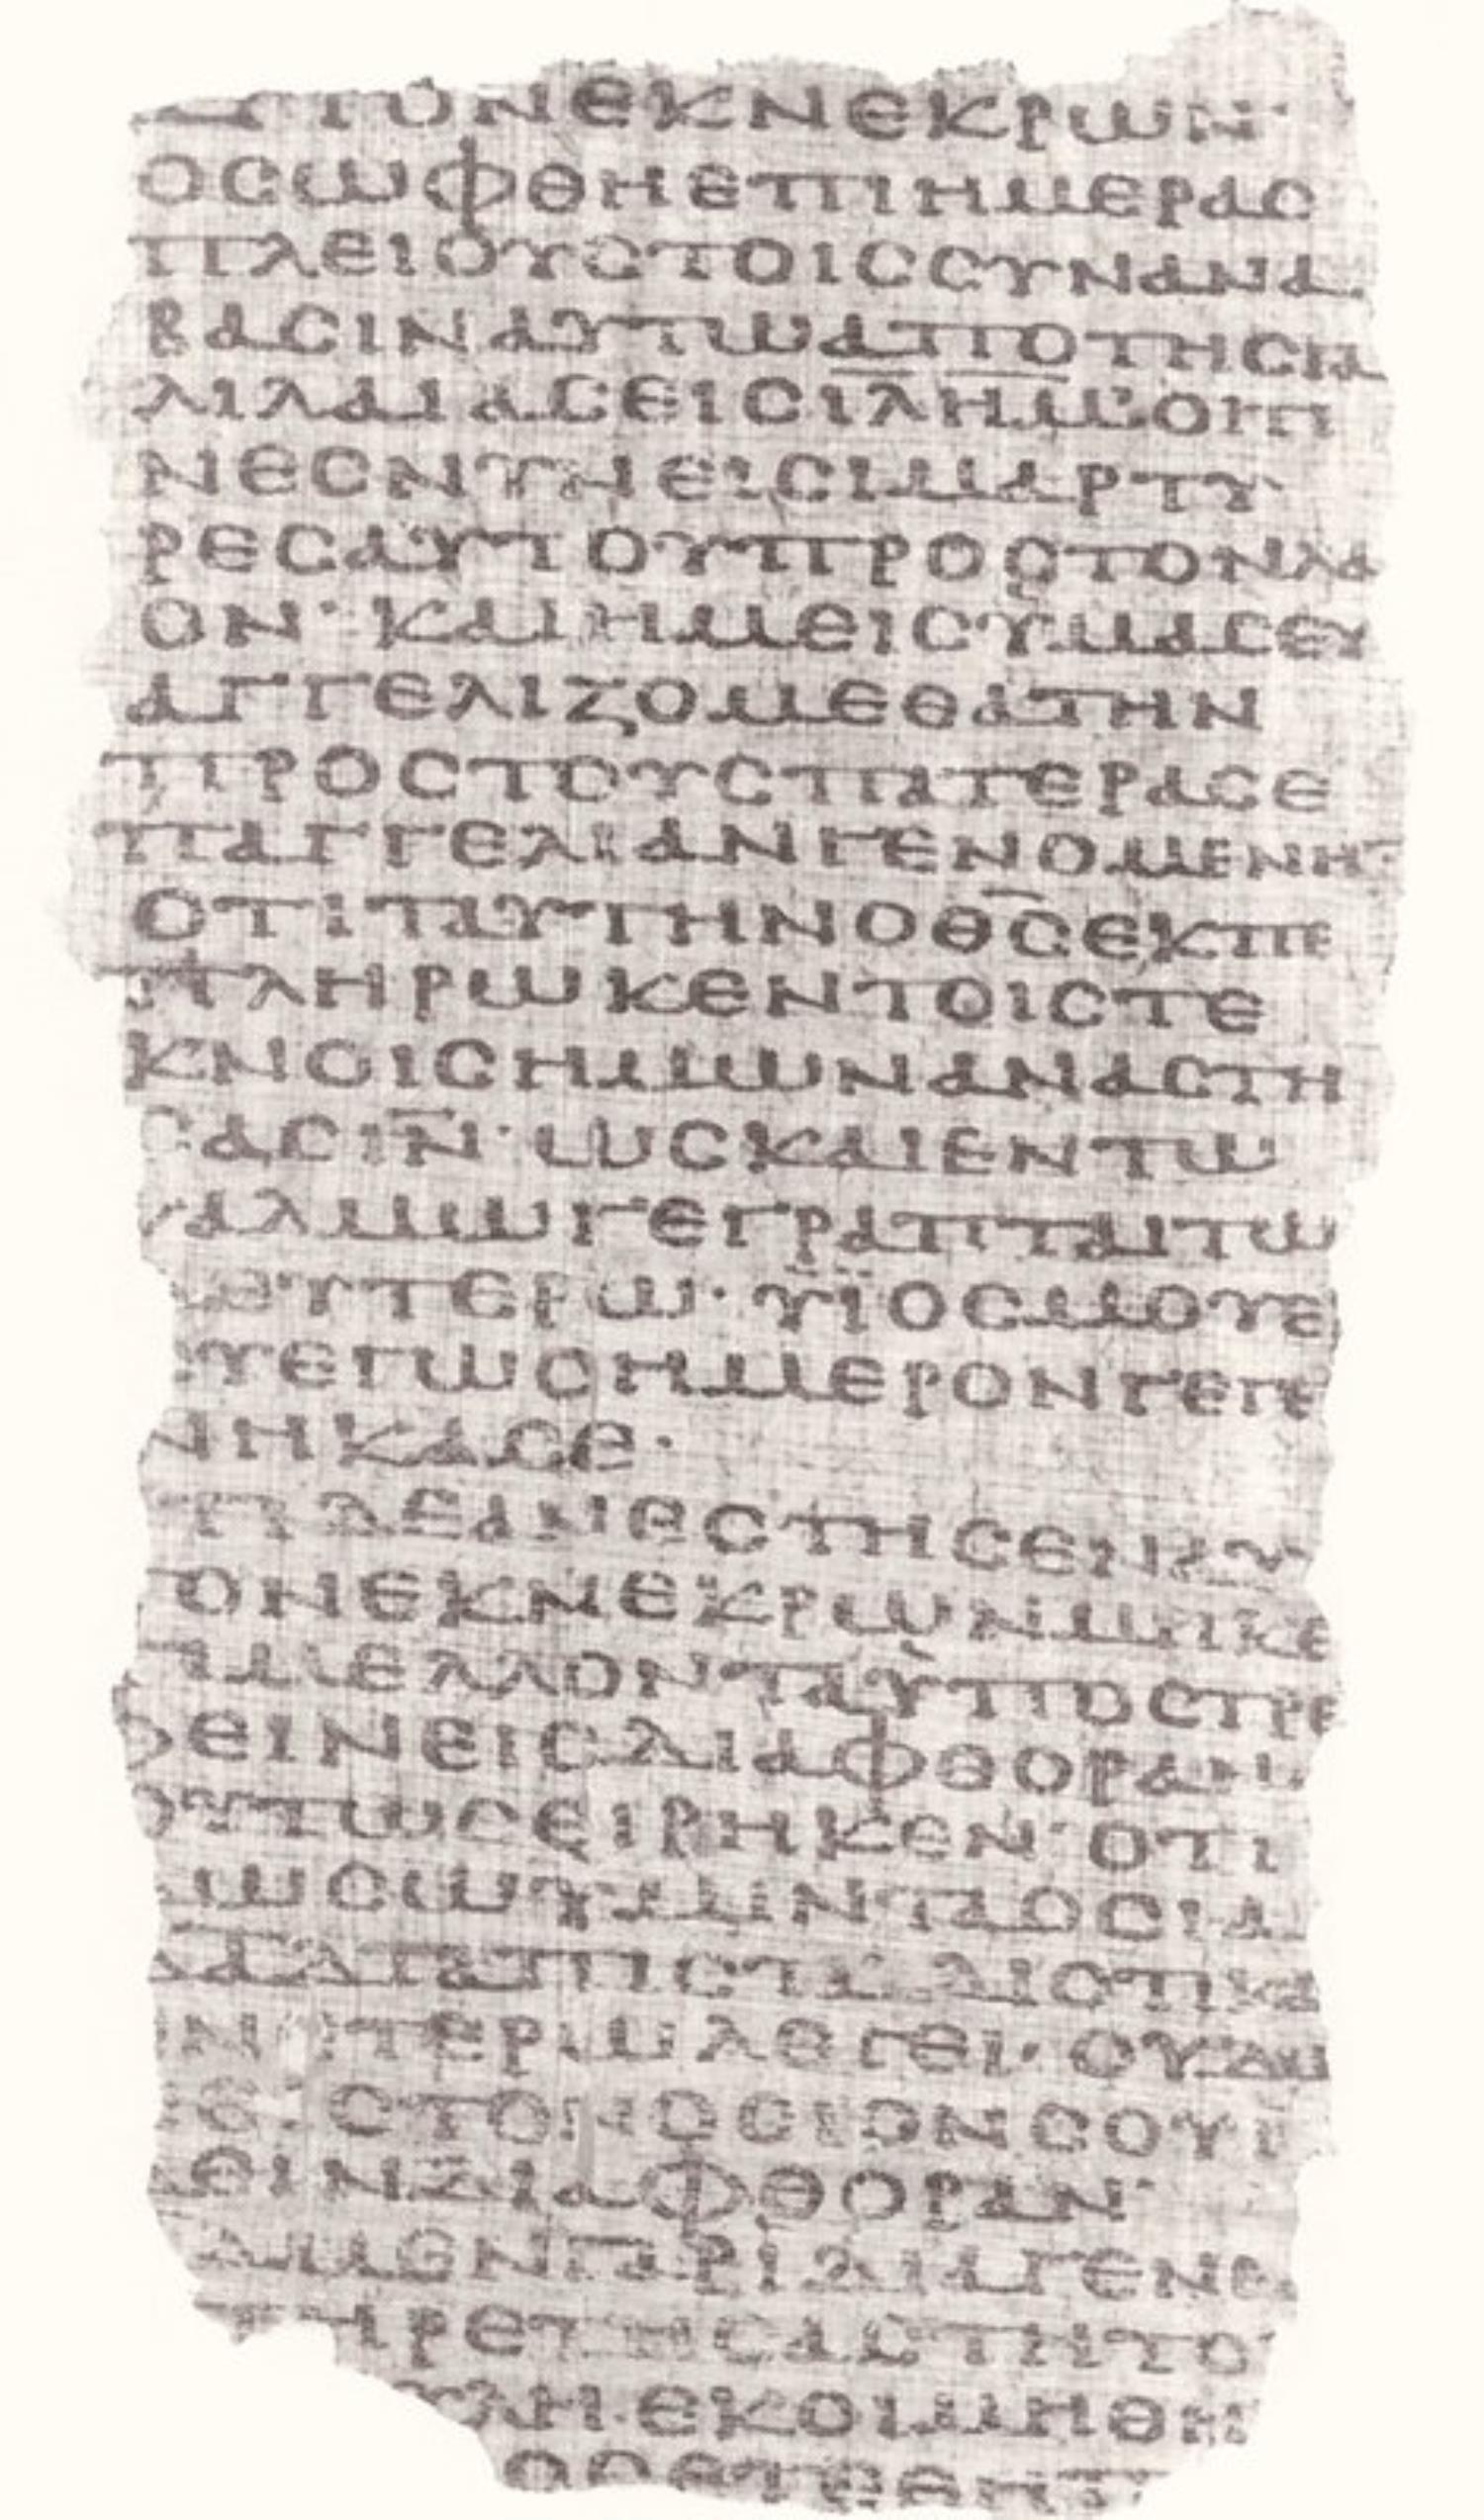 ΑΥΤΟΝΕΚΝΕΚΡΩΝ·
ΟϹΩΦΘΗΕΠΙΗΜΕΡΑϹ
ΠΛΕΙΟΥϹΤΟΙϹϹΥΝΑΝΑ
ΒΑϹΙΝΑΥΤΩΑΠΟΤΗϹΓΑ
ΛΙΛΑΙΑϹΕΙϹΙΛΗΜ·ΟΙΤΙ
ΝΕϹΝΥΝΕΙϹΙΜΑΡΤΥ
ΡΕϹΑΥΤΟΥΠΡΟϹΤΟΝΛΑ
ΟΝ· ΚΑΙΗΜΕΙϹΥΜΑϹΕΥ
ΑΓΓΕΛΙΖΟΜΕΘΑΤΗΝ
ΠΡΟϹΤΟΥϹΠΑΤΕΡΑϹΕ
ΠΑΓΓΕΛΙΑΝΓΕΝΟΜΕΝΗ
ΟΤΙΤΑΥΤΗΝΟΘ̅Ϲ̅ΕΚΠΕ
ΠΛΗΡΩΚΕΝΤΟΙϹΤΕ
ΚΝΟΙϹΗΜΩΝΑΝΑϹΤΗ
ϹΑϹΙ̅Ν̅· ΩϹΚΑΙΕΝΤΩ
ΨΑΛΜΩΓΕΓΡΑΠΤΑΙΤΩ
ΔΕΥΤΕΡΩ· ΫΪΟϹΜΟΥΕ
ϹΥΕΓΩϹΗΜΕΡΟΝΓΕΓΕ
ΝΗΚΑϹΕ·
ΟΤΙΔΕΑΝΕϹΤΗϹΕΝΑΥ
ΤΟΝΕΚΝΕΚΡΩΝΜΗΚΕ
ΤΙΜΕΛΛΟΝΤΑΥΠΟϹΤΡΕ
ΦΕΙΝΕΙϹΔΙΑΦΘΟΡΑΝ
ΟΥΤΩϹΕΙΡΗΚΕΝ· ΟΤΙ
ΔΩϹΩΥΜΙΝΤΑΟϹΙΑ
ΔΑΔΤΑΠΙϹΤΑ ΔΙΟΤΙΚΑ
ΕΝΕΤΕΡΩΛΕΓΕΙ· ΟΥΔΩ
ϹΕΙϹΤΟΝΟϹΙΟΝϹΟΥΙ
ΔΕΙΝΔΙΑΦΘΟΡΑΝ·
ΔΑΔΜΕΝΓΑΡΙΔΙΑΓΕΝΕ
ΥΠΗΡΕΤΗϹΑϹΤΗΤΟ
ΒΟΥΛΗΕΚΟΙΜΗΘΗ
ΠΡΟϹΕΤΕΘΗΠ